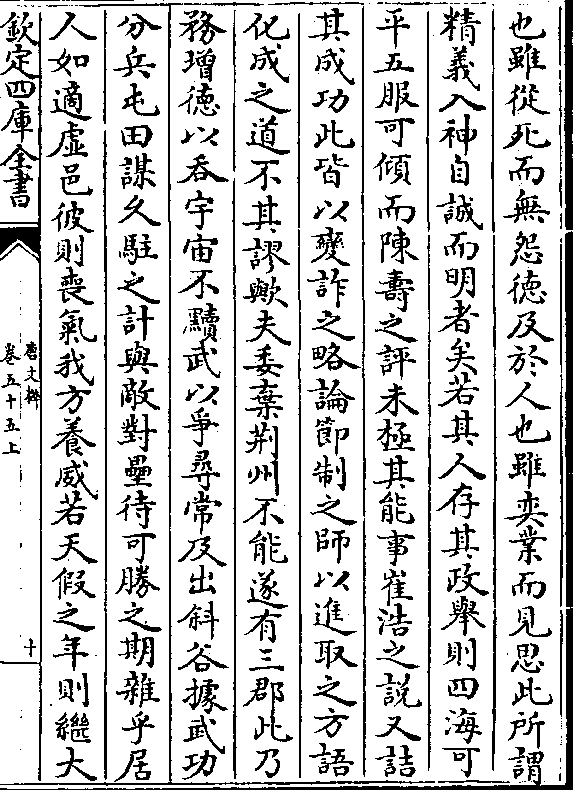 也雖從死而無怨德及於人也雖奕業而見思此所謂
精義入神自誠而明者矣若其人存其政舉則四海可
平五服可傾而陳壽之評未極其能事崔浩之說又詰
其成功此皆以變詐之略論節制之師以進取之方語
化成之道不其謬歟夫委棄荆州不能遂有三郡此乃
務增德以吞宇宙不黷武以爭尋常及出斜谷據武功
分兵屯田謀久駐之計與敵對壘待可勝之期雜乎居
人如適虛邑彼則喪氣我方養威若天假之年則繼大
欽定四庫全書
唐文粹
卷五十五上
十